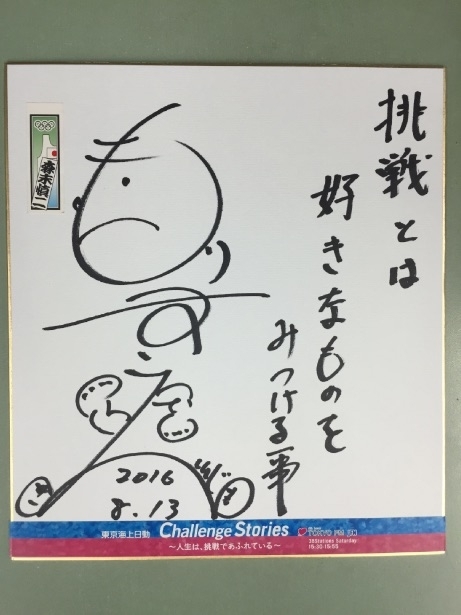 挑戦とは
好きなものを
みつける事
森末慎二
2016
8.13
東京海上日動 Challenge Stories
～人生は、挑戦であふれている～
TOKYO FM
38Stations Saturday